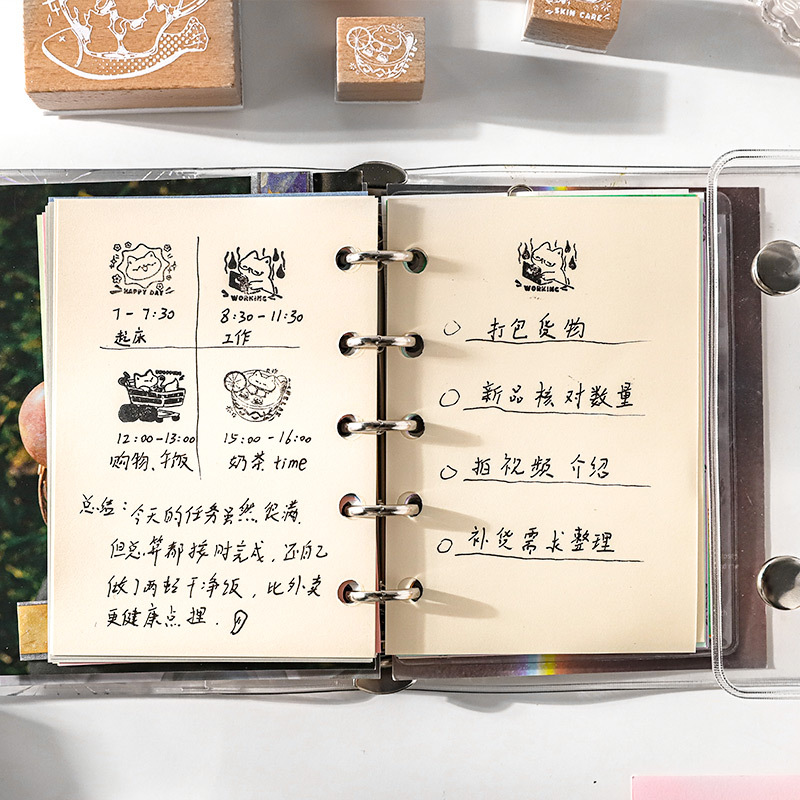 SKIN CARE
HAPPY DAY
7-7:30
起床
WORKING
8:30-11:30
工作
12:00-13:00
购物、午饭
15:00-16:00
奶茶 time
总结：今天的任务虽然很满
但总算都按时完成，还自己
做了两超干净饭，比外卖
更健康点哩．
WORKING
打包货物
新品核对数量
拍视频 介绍
补货需求整理